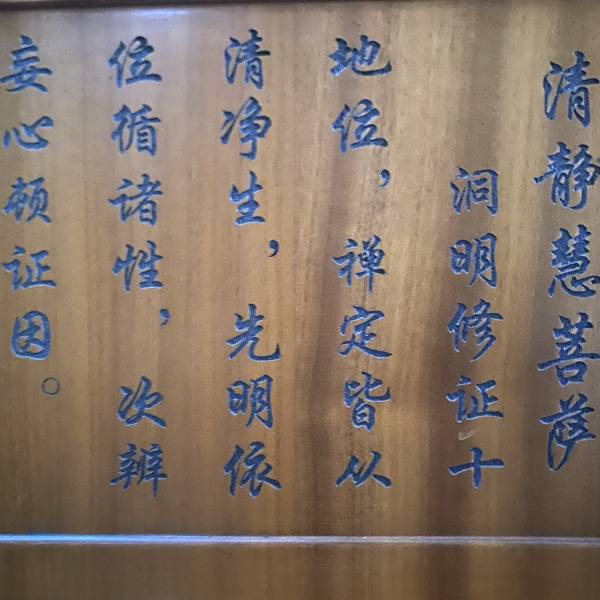 清静慧菩萨
洞明修证十
地位，禅定皆从
清净生，先明依
位循诸性，次辨
妄心顿证因。